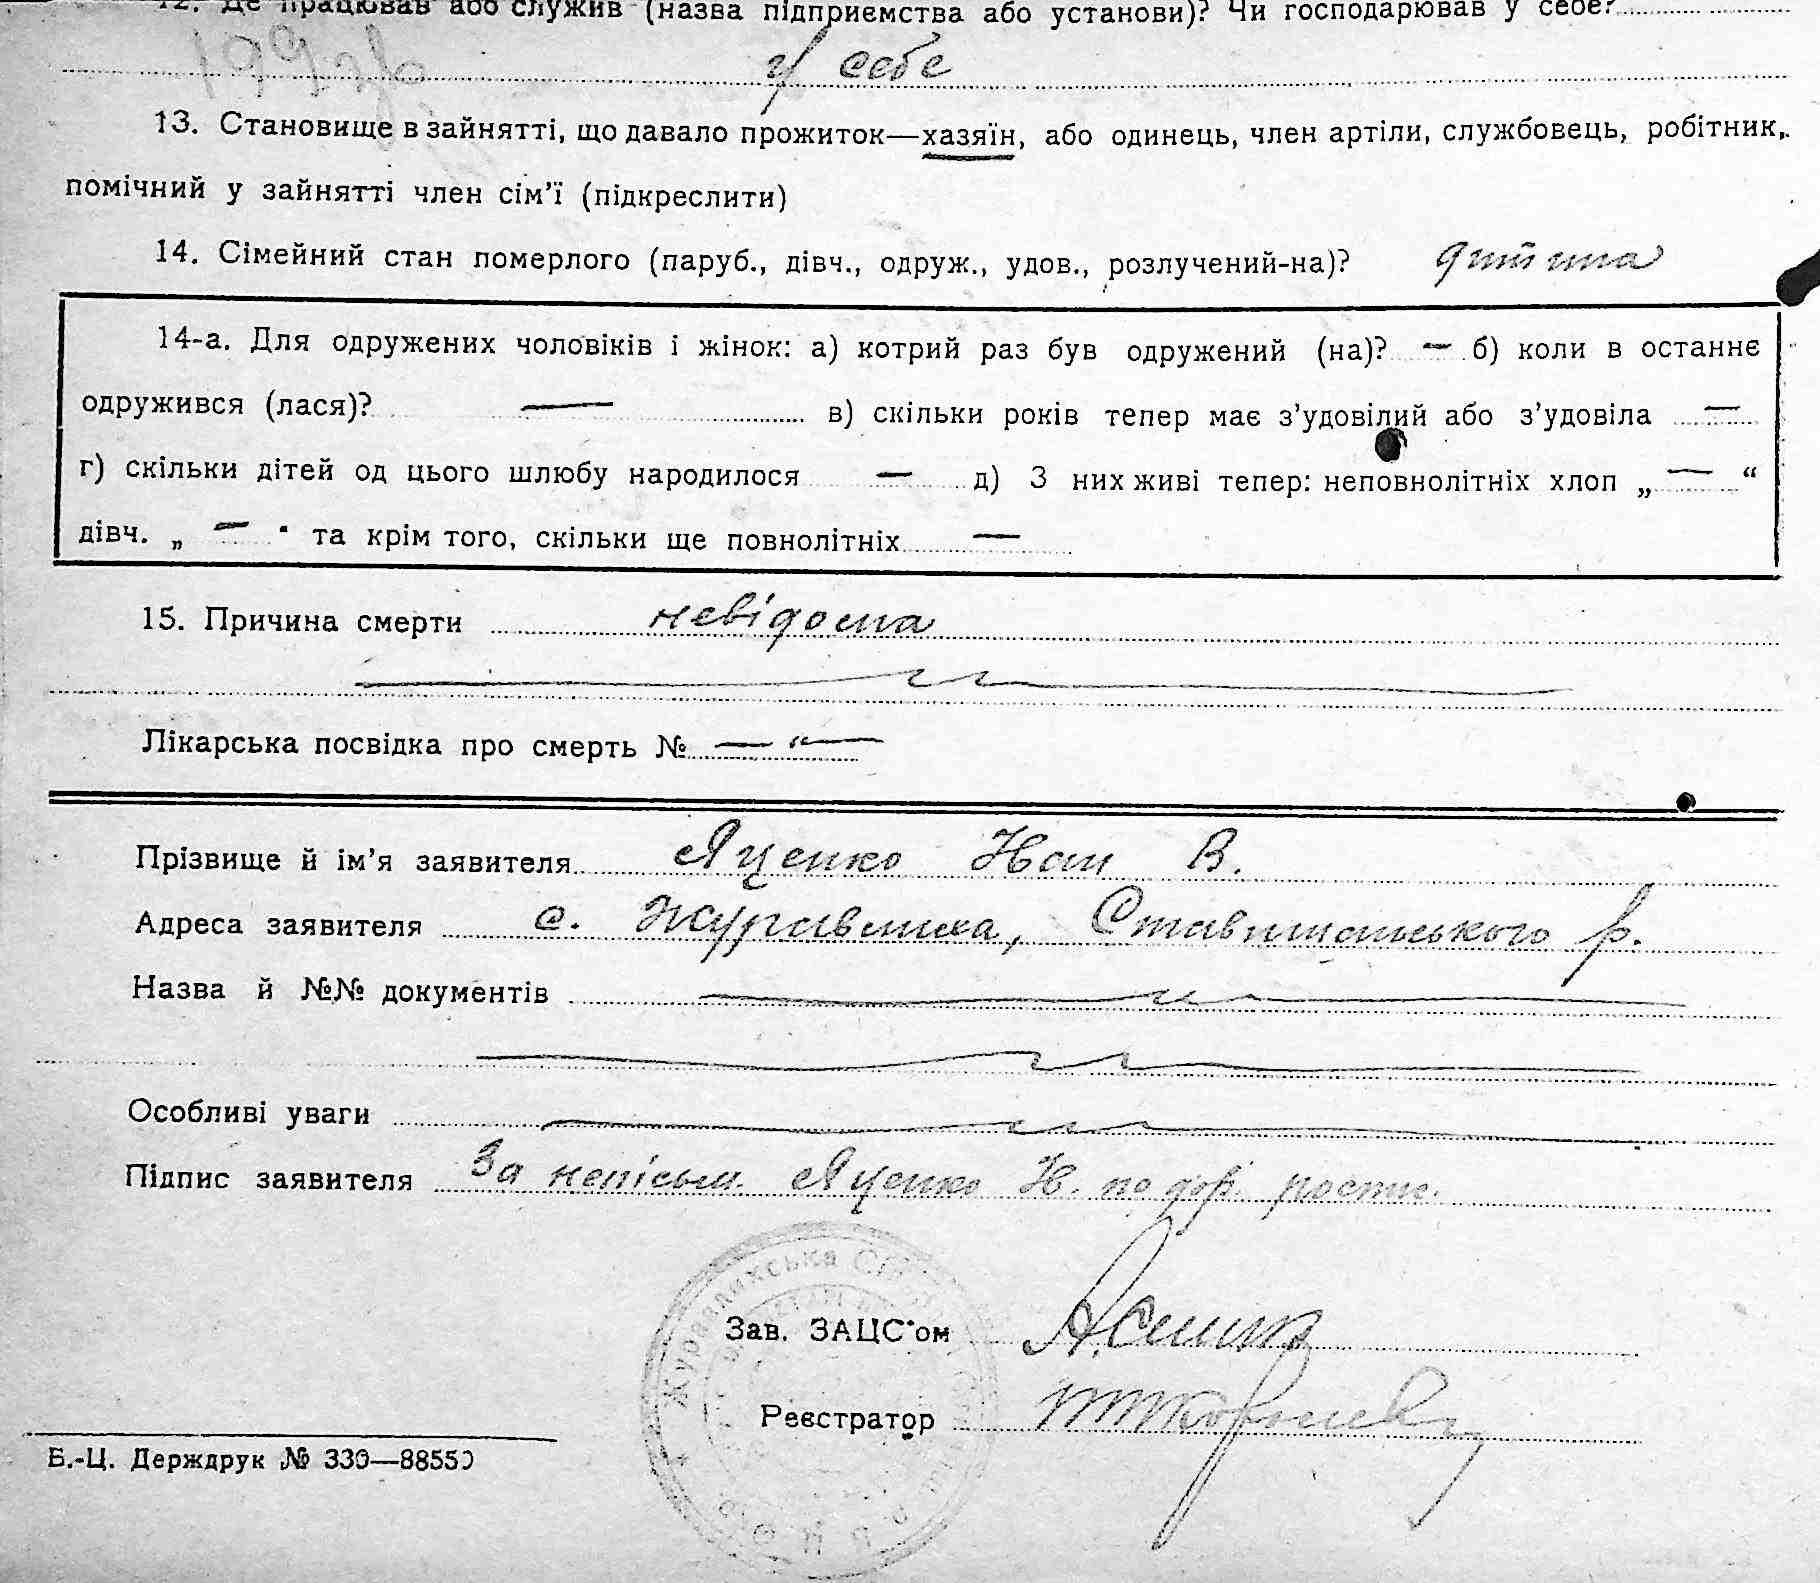 12. Де працював або служив (назва підприємства або установи)? Чи господарював у себе?
у себе
13. Становище в зайнятті, що давало прожиток—хазяїн, або одинець, член артіли, службовець, робітник,
помічний у зайнятті член сім’ї (підкреслити)
14. Сімейний стан померлого (паруб., дівч., одруж., удов., розлучений-на)? дитина
14-а. Для одружених чоловіків і жінок: а) котрий раз був одружений (на)? — б) коли в останнє
одружився (лася)? — в) скільки років тепер має з’удовілий або з’удовіла —
г) скільки дітей од цього шлюбу народилося — д) З них живі тепер: неповнолітніх хлоп „ — “
дівч. „ — “ та крім того, скільки ще повнолітніх —
15. Причина смерти невідома
— „ —
Лікарська посвідка про смерть № — „ —
Прізвище й ім’я заявителя Яценко В.
Адреса заявителя с. Журавлиха, Ставищанського р.
Назва й №№ документів — „ —
— „ —
Особливі уваги — „ —
Підпис заявителя За неписьм. Яценко по дор. роспис.
Журавлихська
Зав. ЗАЦС'ом
Реєстратор
Б.-Ц. Держдрук № 339—88550